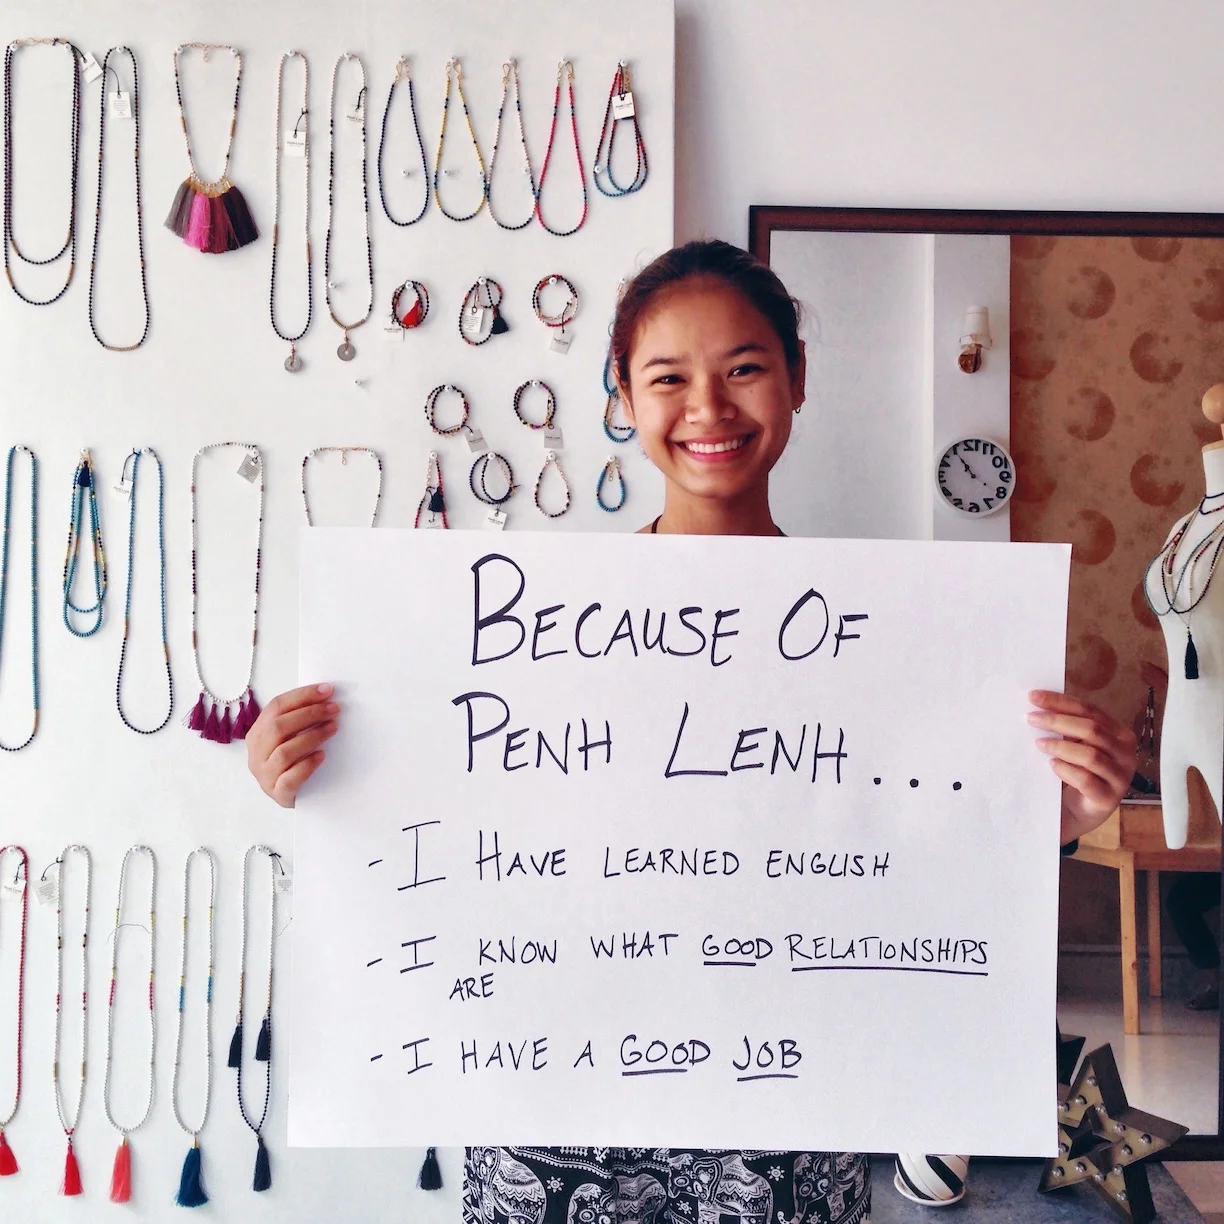 BECAUSE OF
PENH LENH...
- I HAVE LEARNED ENGLISH
- I KNOW WHAT GOOD RELATIONSHIPS
ARE
- I HAVE A GOOD JOB